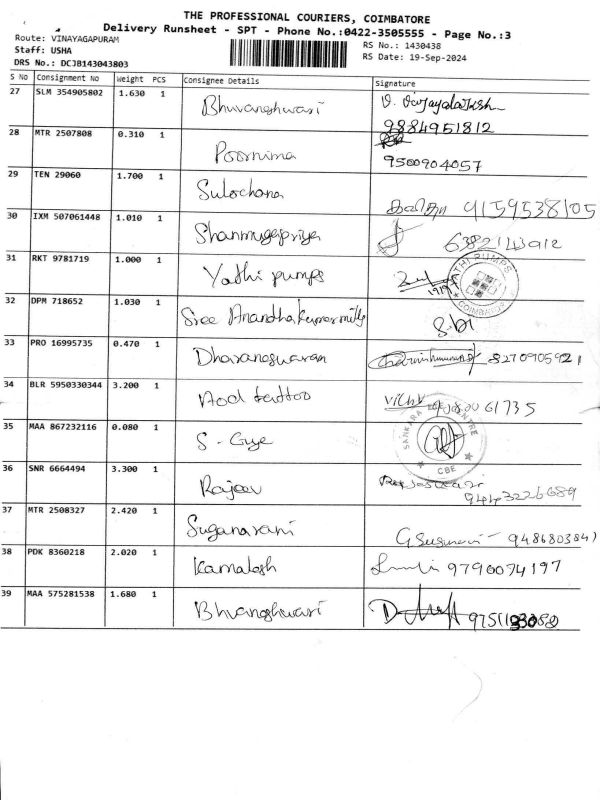 THE PROFESSIONAL COURIERS, COIMBATORE
Delivery Runsheet - SPT - Phone No.:0422-3505555 - Page No.:3
Route: VINAYAGAPURAM
RS No.: 1430438
Staff: USHA
RS Date: 19-Sep-2024
DRS No.: DCJB143043803
S No Consignment No Weight PCS Consignee Details Signature
27 SLM 354905802 1.630 1 Bhuvaneshwari
9884951812
28 MTR 2507808 0.310 1 Poornima 9500904057
29 TEN 29060 1.700 1 Sulochana 9159538105
30 IXM 507061448 1.010 1 Shanmugapriya
31 RKT 9781719 1.000 1 Yathi pumps
YATHI PUMPS
COIMBATORE
32 DPM 718652 1.030 1 Sree Anandhakumar mills
33 PRO 16995735 0.470 1 Dharaneswaran 8270905921
34 BLR 5950330344 3.200 1 Aod tattoo
35 MAA 867232116 0.080 1 S - Guye
SANKARA CENTRE
CBE
36 SNR 6664494 3.300 1 Rajeev
9443226689
37 MTR 2508327 2.420 1 Suganarani
38 PDK 8360218 2.020 1 Kamalesh 9790074197
39 MAA 575281538 1.680 1 Bhvangshwari